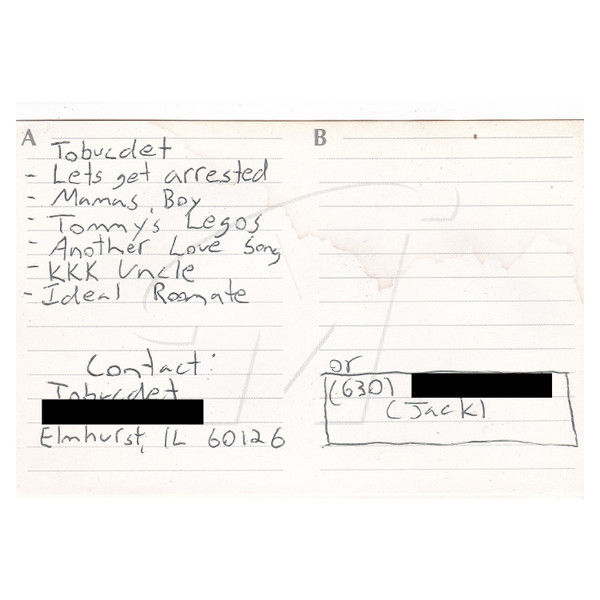 A
Tobucdet
- Lets get arrested
- Mamas Boy
- Tommys Legos
- Another Love Song
- KKK Uncle
- Ideal Roomate
Contact:
Tobucdet
Elmhurst, IL 60126
B
or
(630)
(Jack)